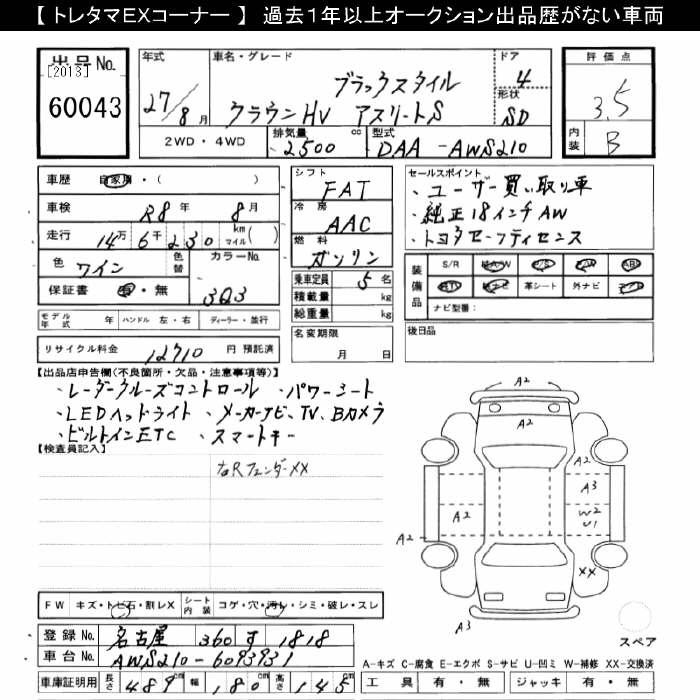 【 トレタマEXコーナー 】 過去1年以上オークション出品歴がない車両
出品No.
[2013]
60043
年式
27/8月
車名・グレード
ブラックスタイル
クラウンHV アスリートS
ドア
4
形状
SD
評価点
3.5
内装
B
2WD・4WD
排気量 2500 cc
型式 DAA-AWS210
車歴 自家用・( )
車検 R8年 8月
走行 14万6千230 km マイル( )
色 ワイン
色替
カラーNo.
3Q3
保証書 有・無
シフト
FAT
冷房
AAC
燃料
ガソリン
乗車定員 5名
積載量 kg
総重量 kg
名変期限
月 日
セールスポイント
・ユーザー買い取り車
・純正18インチAW
・トヨタセーフティセンス
装備品
S/R 純AW P/S P/W ABS
純TV 純ナビ 革シート 外ナビ エアB
ナビ型番:
後日品
モデル年式 年
ハンドル 左・右
ディーラー・並行
リサイクル料金 12710 円 預託済
【出品店申告欄(不良箇所・欠品・注意事項等)】
・レーダークルーズコントロール ・パワーシート
・LEDヘッドライト ・メーカーナビ、TV、Bカメラ
・ビルトインETC ・スマートキー
【検査員記入】
右RフェンダーXX
A2
A2
A2
A3
A2
W2
U1
A2
XX
A3
スペア
FW キズ・トビ石・割レX
シート内装 コゲ・穴・汚レ・シミ・破レ・スレ
登録No. 名古屋 360 す 1818
車台No. AWS210-6093931
車庫証明用 長さ 489cm 幅 180cm 高さ 145cm
A-キズ C-腐食 E-エクボ S-サビ U-凹ミ W-補修 XX-交換済
工具 有・無 ジャッキ 有・無